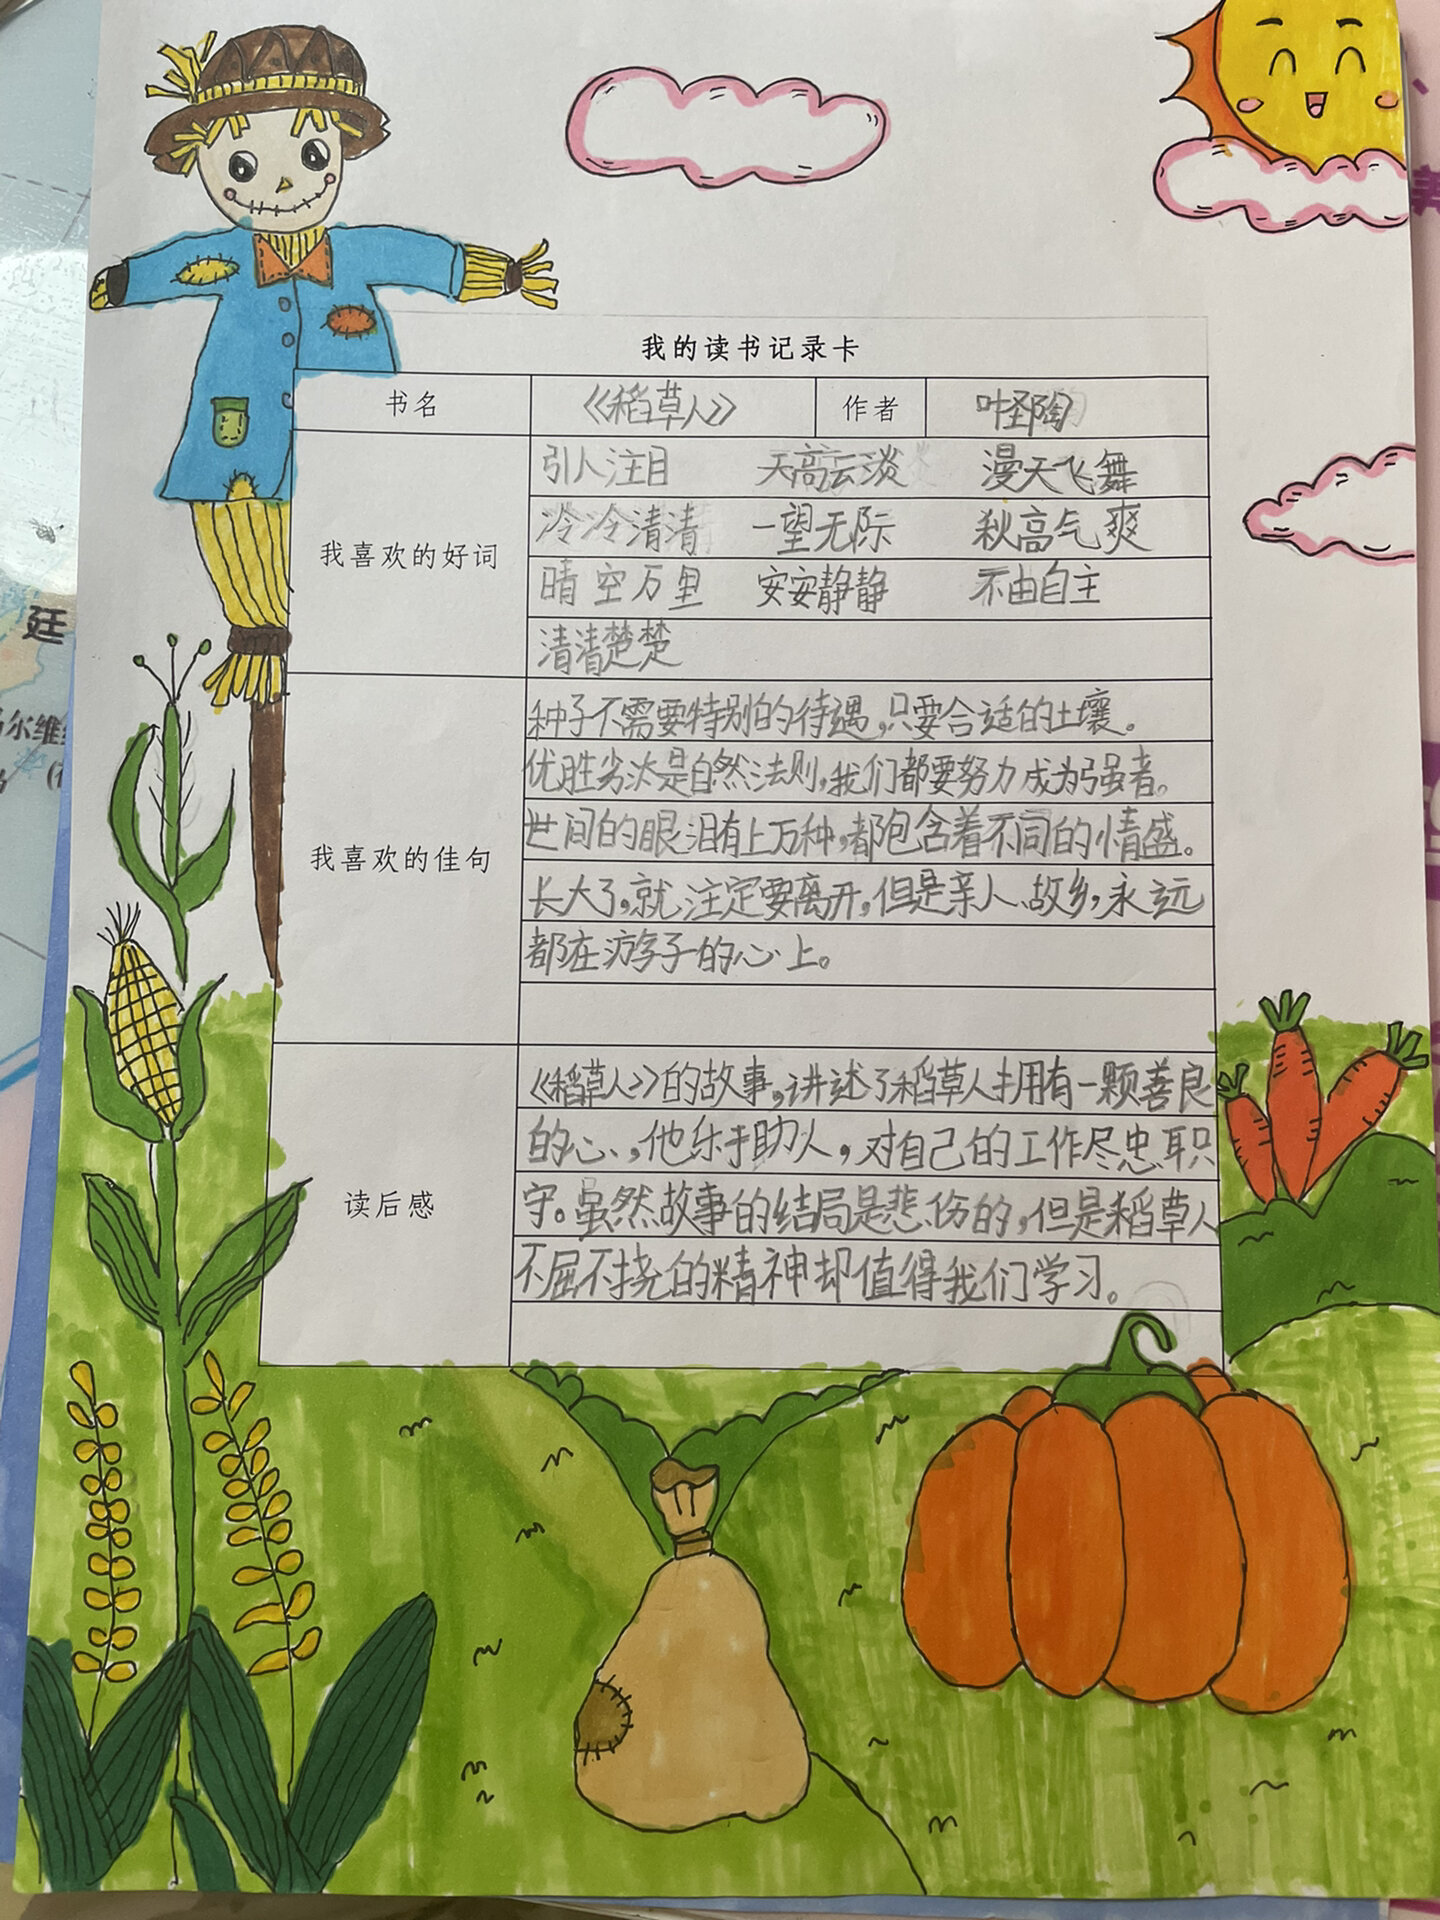 我的读书记录卡
书名 《稻草人》 作者 叶圣陶
我喜欢的好词
引人注目 天高云淡 漫天飞舞
冷冷清清 一望无际 秋高气爽
晴空万里 安安静静 不由自主
清清楚楚
我喜欢的佳句
种子不需要特别的待遇,只要合适的土壤。
优胜劣汰是自然法则,我们都要努力成为强者。
世间的眼泪有上万种,都包含着不同的情盛。
长大了,就注定要离开,但是亲人、故乡,永远
都在游子的心上。
读后感
《稻草人》的故事,讲述了稻草人拥有一颗善良
的心,他乐于助人,对自己的工作尽忠职
守。虽然故事的结局是悲伤的,但是稻草人
不屈不挠的精神却值得我们学习。
廷
尔维
美